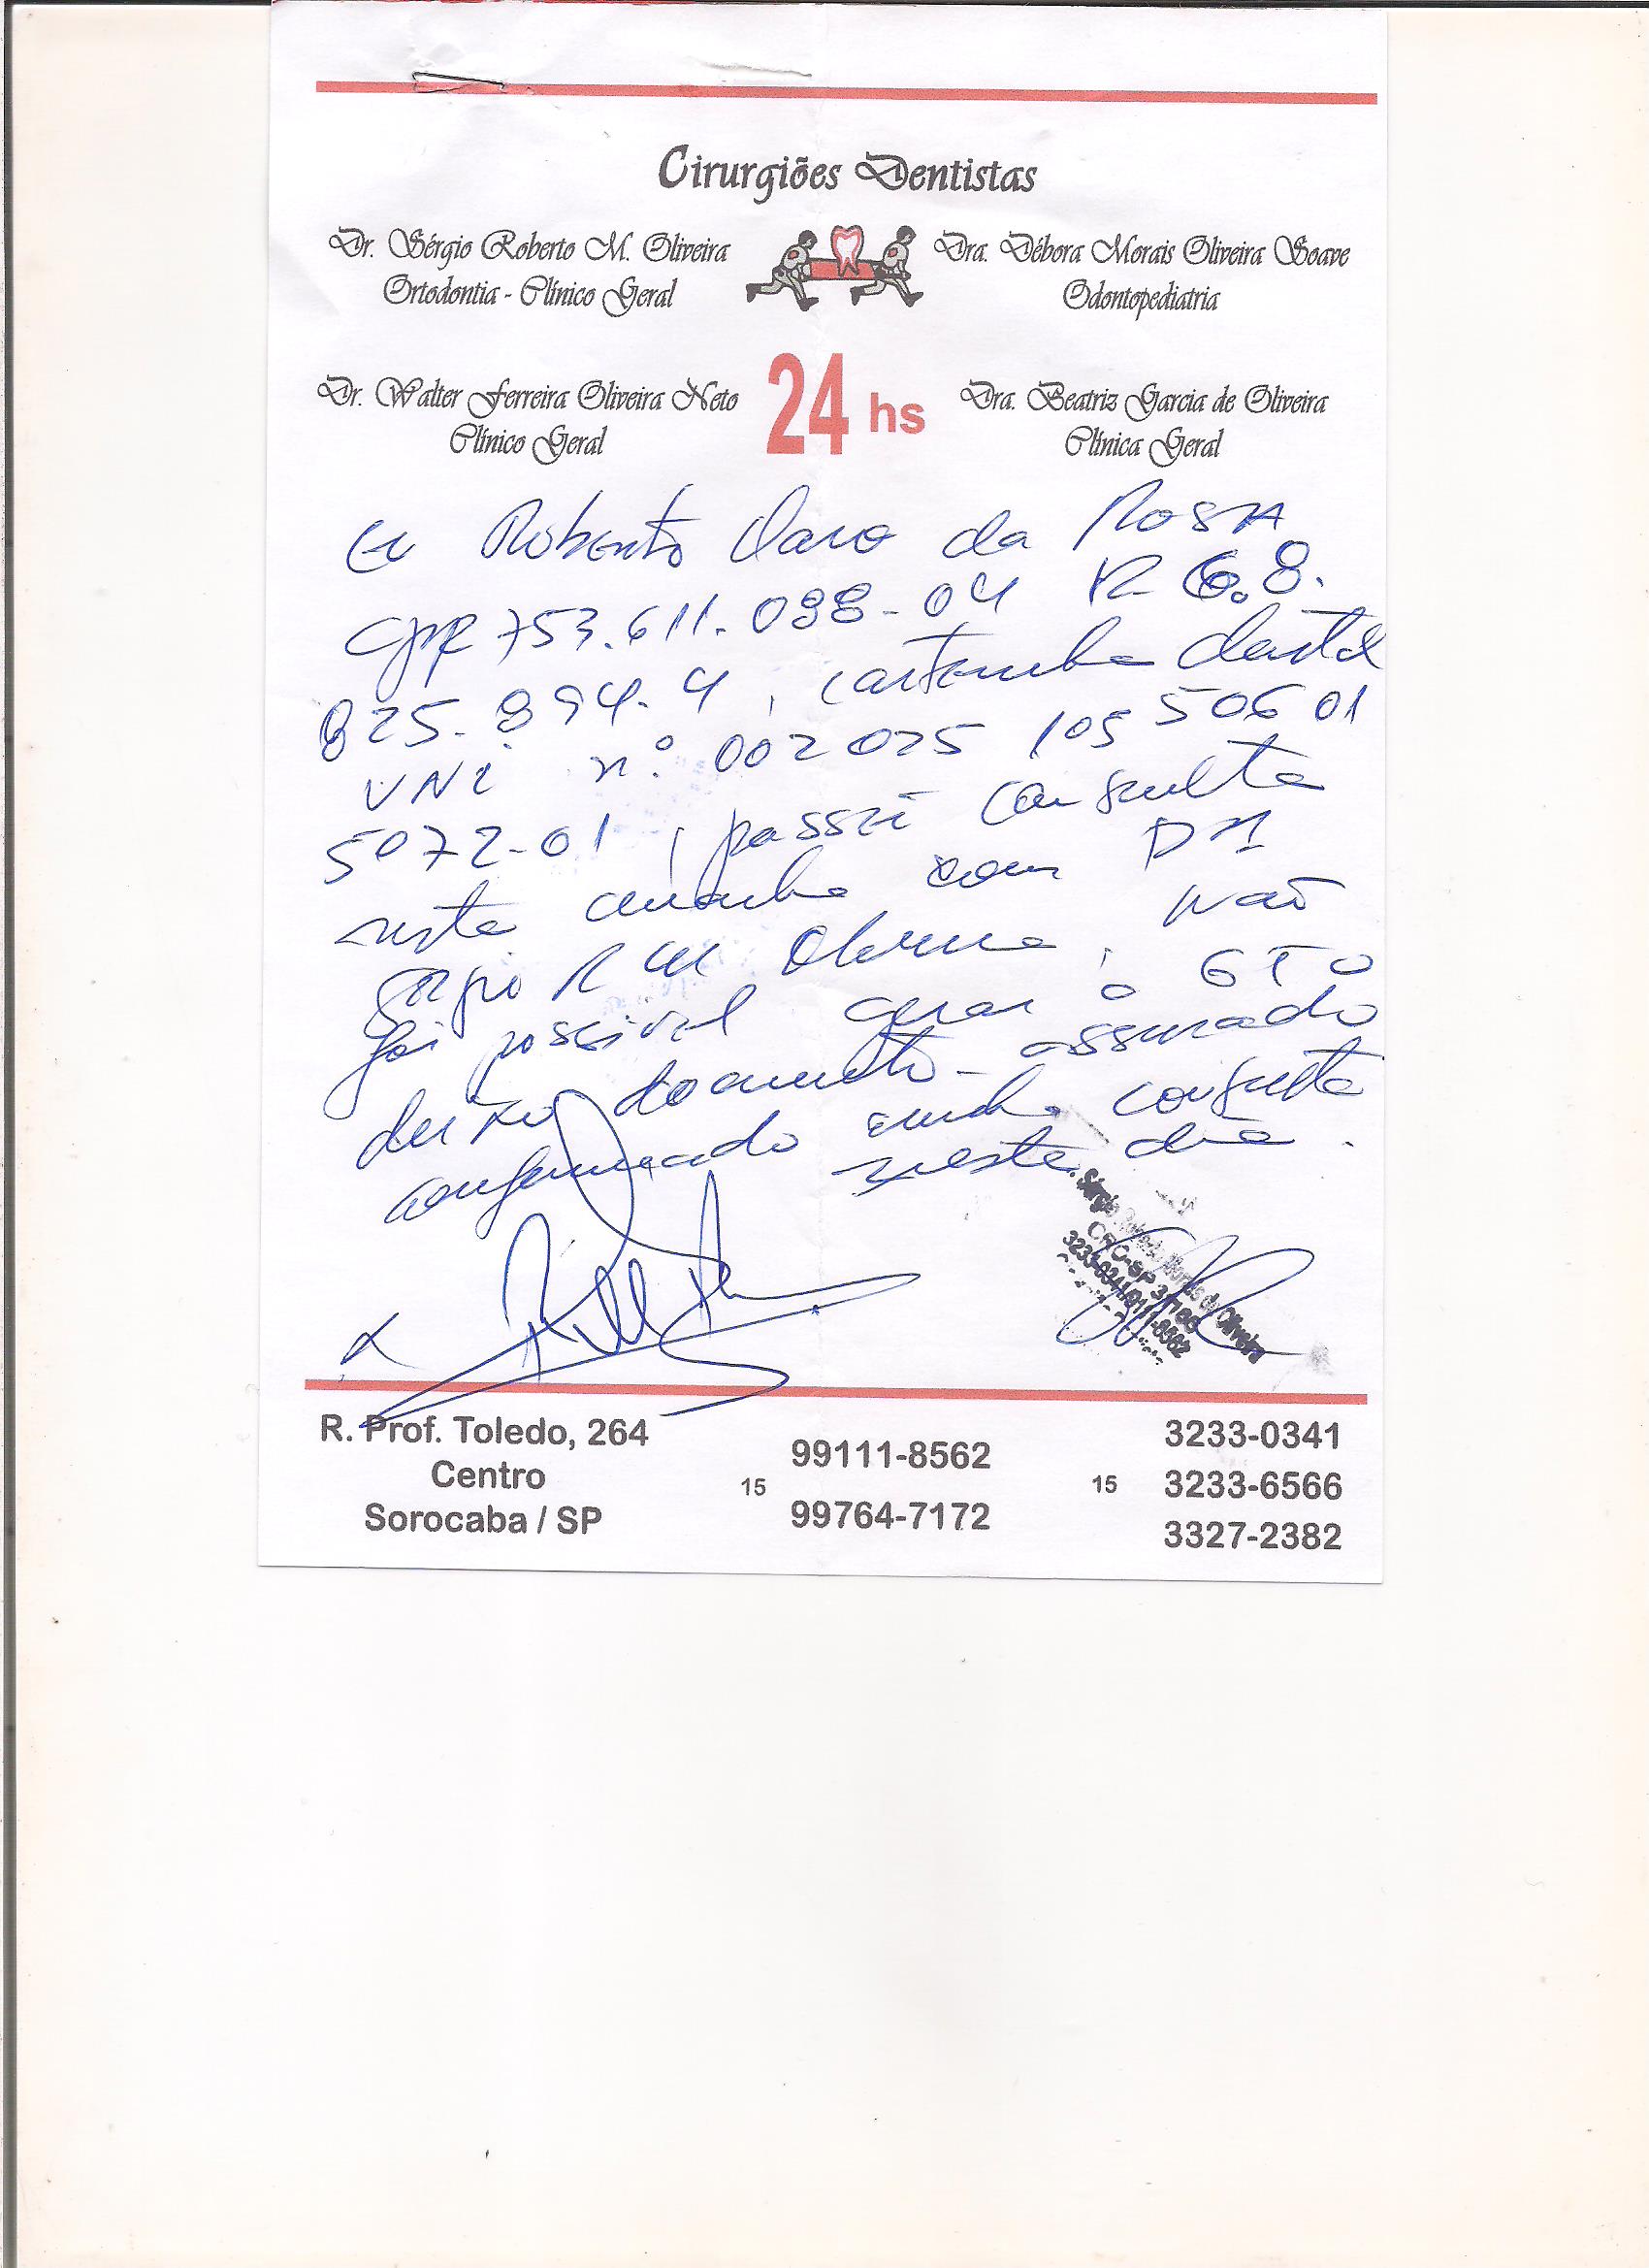 Cirurgiões Dentistas
Dr. Sérgio Roberto M. Oliveira
Ortodontia - Clínico Geral
Dra. Débora Morais Oliveira Soave
Odontopediatria
Dr. Walter Ferreira Oliveira Neto
Clínico Geral
24 hs
Dra. Beatriz Garcia de Oliveira
Clínica Geral
Eu Roberto Claro da Rosa
CPF 753.611.098-04 RG. 8.
825.894.4, carteinha dental
UNI nº. 002 025 105 50601
5072-01, passei consulta
nesta com DR
Sérgio R M Oliveira, não
foi possivel gerar o GTO
deixo documento assinado
confirmando minha consulta
neste dia.
Sérgio Roberto Morais de Oliveira
CRO-SP
3233-0341/9111-8562
R. Prof. Toledo, 264
Centro
Sorocaba / SP
15 99111-8562
99764-7172
15 3233-0341
3233-6566
3327-2382